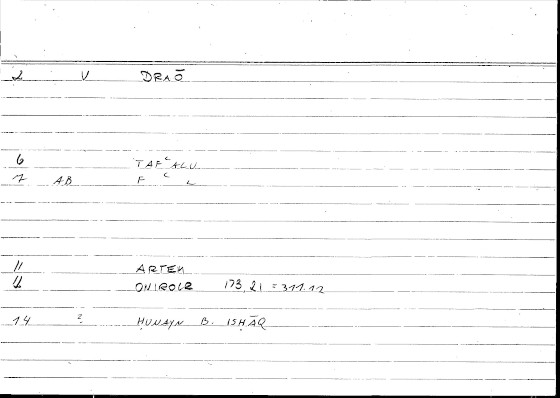 2 V DRAŌ
6 TAFʿALU
7 AB F ʿ L
11 ARTEM
11 ONIROCR 173,21 = 311.12
14 ? ḤUNAYN B. ISḤĀQ